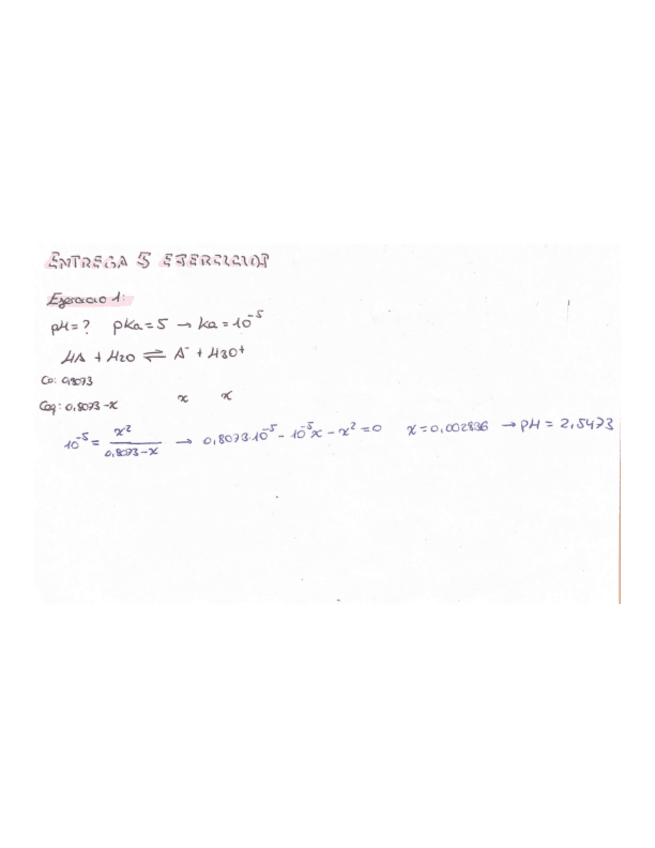 ENTREGA 5 EJERCICIOS
Ejercicio 1:
pH = ? pKa = 5 → Ka = 10⁻⁵
HA + H2O ⇌ A⁻ + H3O⁺
Co: 0,8073
Ceq: 0,8073-x x x
10⁻⁵ = x² / 0,8073-x → 0,8073·10⁻⁵ - 10⁻⁵x - x² = 0 x = 0,002836 → pH = 2,5473